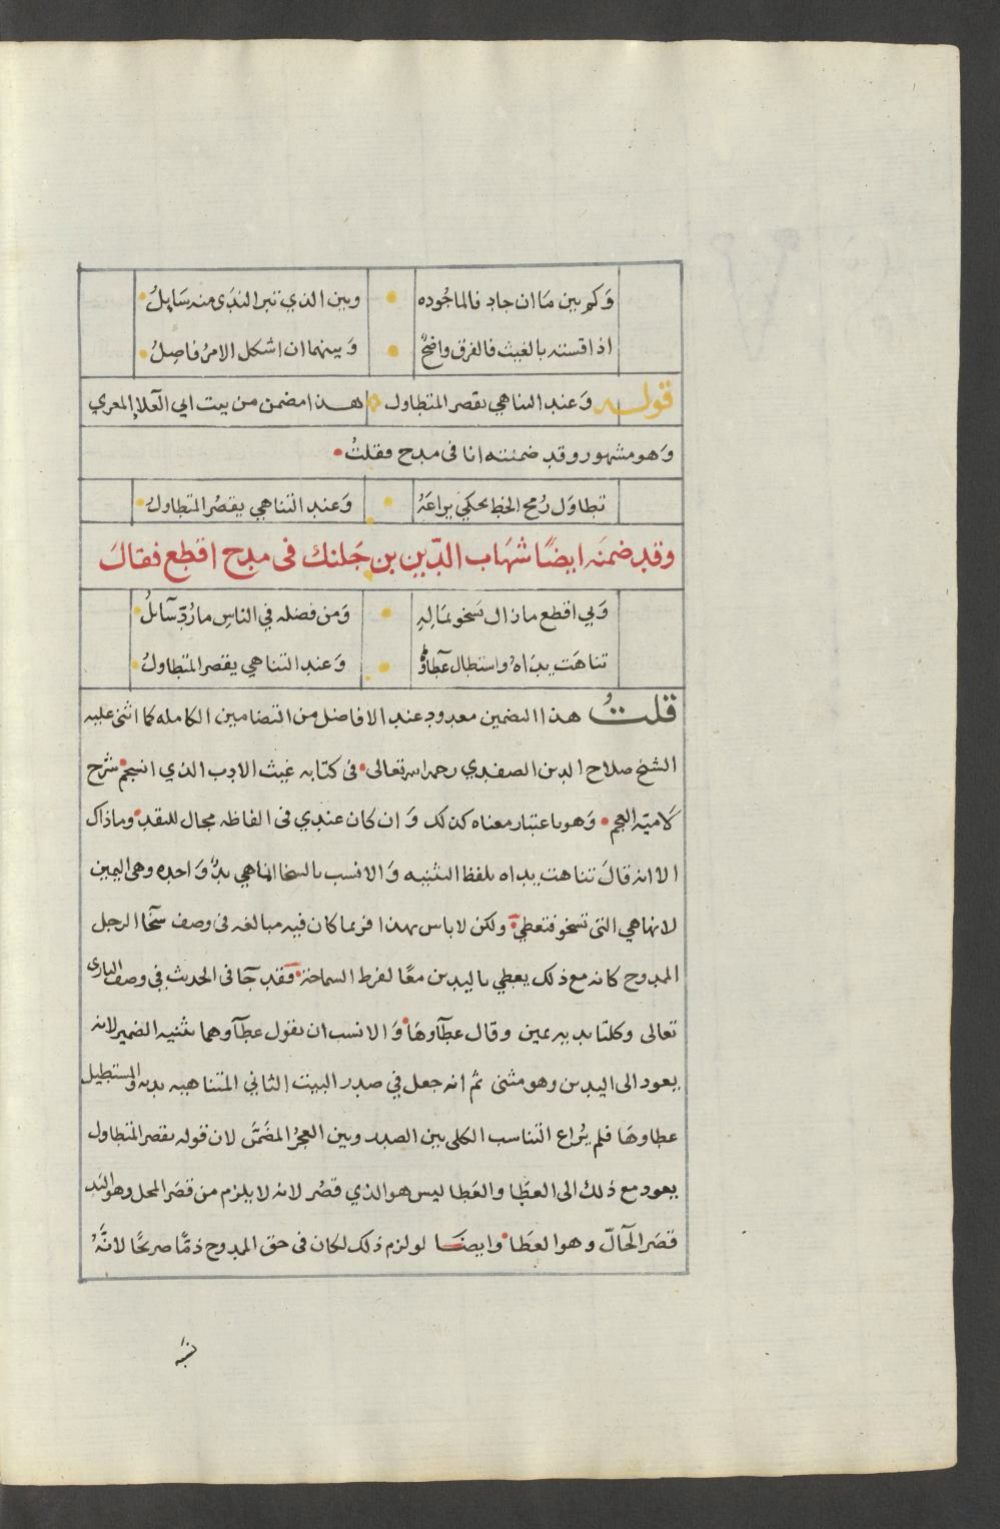 وَكم بين مَا ان جاد فالماجُوده • وبين الذي تبر الندَى منه سَايلُ
اذا قسته بالغيث فالفرق واضحٌ • وَبينهما ان اشكل الامرُ فاصِلُ
قوله وَعند التناهي يقصر المتطاول هذا مضمن من بيت ابي العَلاء المعري
وَهو مشهور وقد ضمنته انا في مدح فقلتُ
تطاوَل رُمح الخط يحكي يراعَهُ • وَعند التناهي يقصُر المتطاولُ
وقد ضمنَه ايضًا شهَاب الدّين بن جَلنك في مدح اقطع فقالَ
وَبي اقطع مازال يسخو بمَالِهِ • وَمن فضله في الناسِ ما رُدّ سَآئلُ
تناهَت يدَاهُ واستطال عَطاؤُها • وَعند التناهي يقصر المتطاولُ
قلتُ هذا التضمين معدود عند الافاضل من التضامين الكامله كما اثنى عليه
الشيخ صلاح الدين الصفدي رحمه الله تعالى في كتابه غيث الادب الذي انسجم شرح
لَاميّه العجم وَهو باعتبار معناه كذلك وَان كان عندي في الفاظه مجال للنقد وماذاك
الا انه قالَ تناهت يداه بلفظ التثنيه وَالانسب بالسخا انما هي يدٌ وَاحده وهي اليمين
لانها هي التي تسخو فتعطي ولكن لا باس بهذا فربما كان فيه مبالغه في وصف سَخَا الرجل
الممدوح كانه مع ذلك يعطي باليدين معًا لفرط السماحة فقد جَآ في الحديث في وصف البارى
تعالى وكلتا يديه يمين وقال عطآوهَا وَالانسب ان يقول عطآوهما بتثنيه الضمير لانه
يعود الى اليدين وهو مثنى ثم انه جعل في صدر البيت الثاني المتناهيه يديه والمستطيل
عطاوهَا فلم يُراع التناسب الكلي بين الصدر وبين العجزُ المضمَّن لان قوله يقصر المتطاول
يعود مع ذلك الى العطَا والعَطا ليس هو الذي قصُر لانه لا يلزم من قصَر المحل وهو اليَد
قصَر الحَآلّ وهو العطَا وايضَا لو لزم ذلك لكان في حق الممدوح ذمًّا صريحًا لانَّهُ